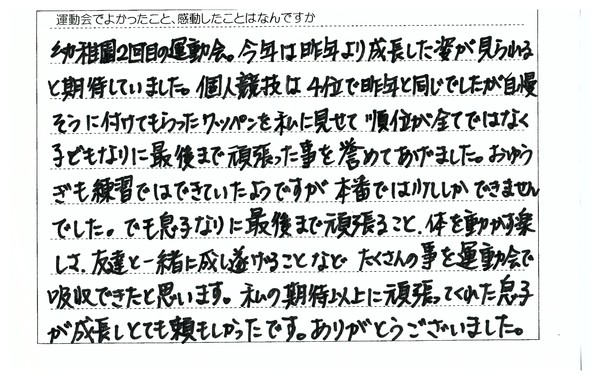 運動会でよかったこと、感動したことはなんですか
幼稚園2回目の運動会。今年は昨年より成長した姿が見られる
と期待していました。個人競技は4位で昨年と同じでしたが自慢
そうに付けてもらったワッペンを私に見せて順位が全てではなく
子どもなりに最後まで頑張った事を誉めてあげました。おゆう
ぎも練習ではできていたようですが本番では少ししかできません
でした。でも息子なりに最後まで頑張ること、体を動かす楽
しさ、友達と一緒に成し遂げることなど たくさんの事を運動会で
吸収できたと思います。私の期待以上に頑張ってくれた息子
が成長しとても頼もしかったです。ありがとうございました。